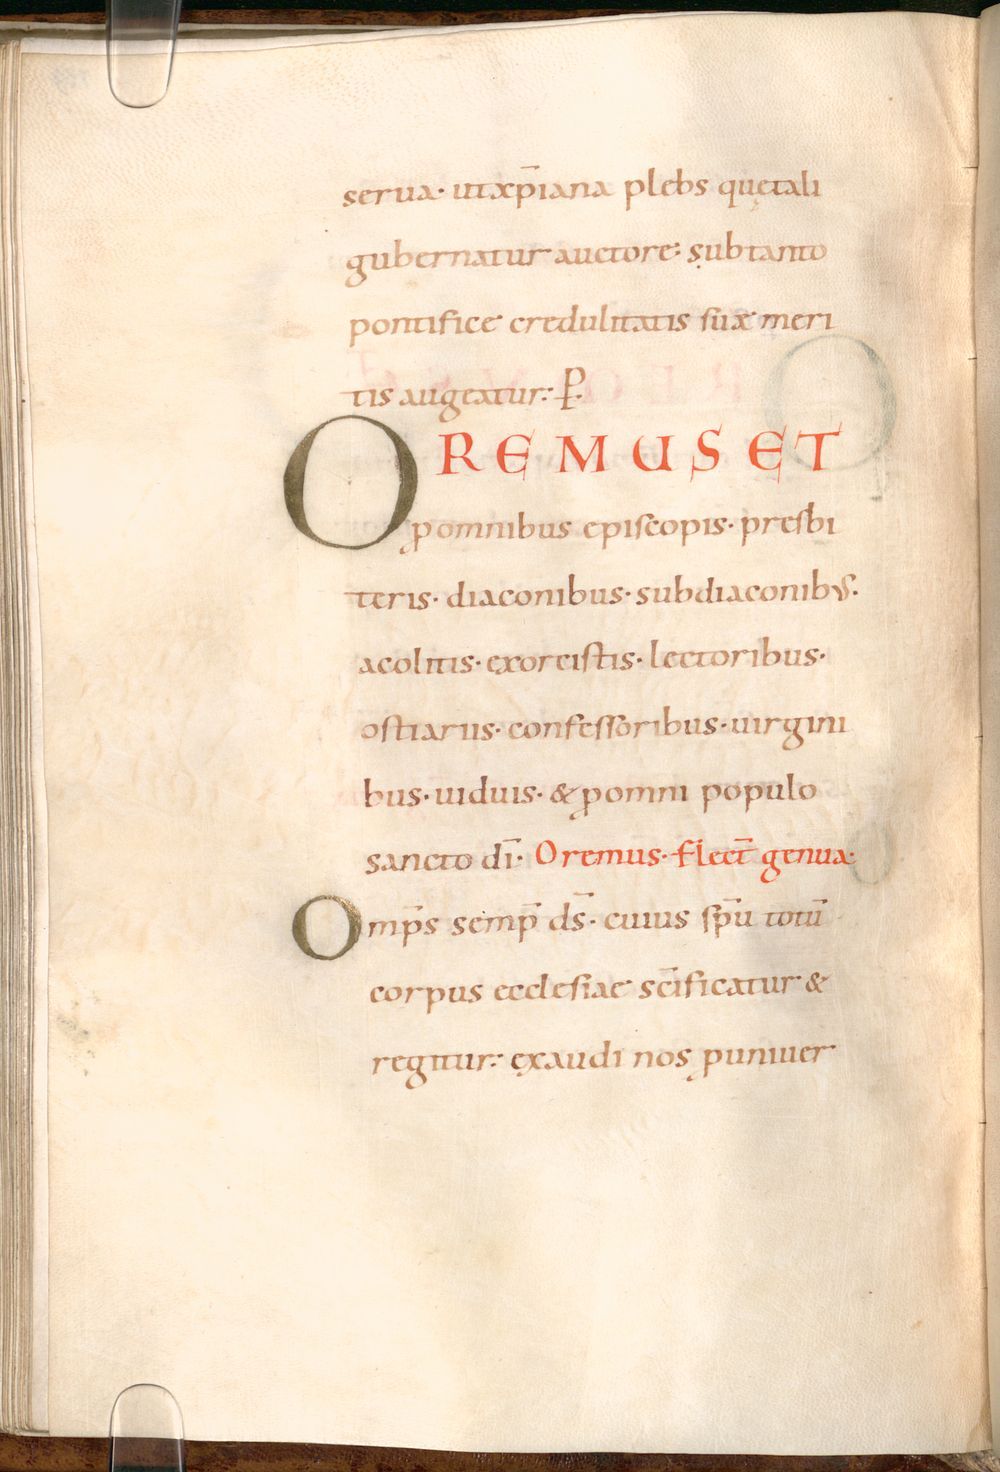 serua· utxp̄iana plebs quętali
gubernatur auctore· sub tanto
pontifice credulitatis suae meri
tis augeatur: P̄.
OREMUS ET
ꝓ omnibus episcopis· presbi
teris· diaconibus· subdiaconibus·
acolitis· exorcistis· lectoribus·
ostiariis· confessoribus· uirgini
bus· uiduis· & ꝓ omni populo
sancto dī· Oremus· flect̄ genua·
Omp̄s semp̄ ds̄· cuius sp̄u totū
corpus ecclesiae sc̄ificatur &
regitur: exaudi nos ꝓ uniuer